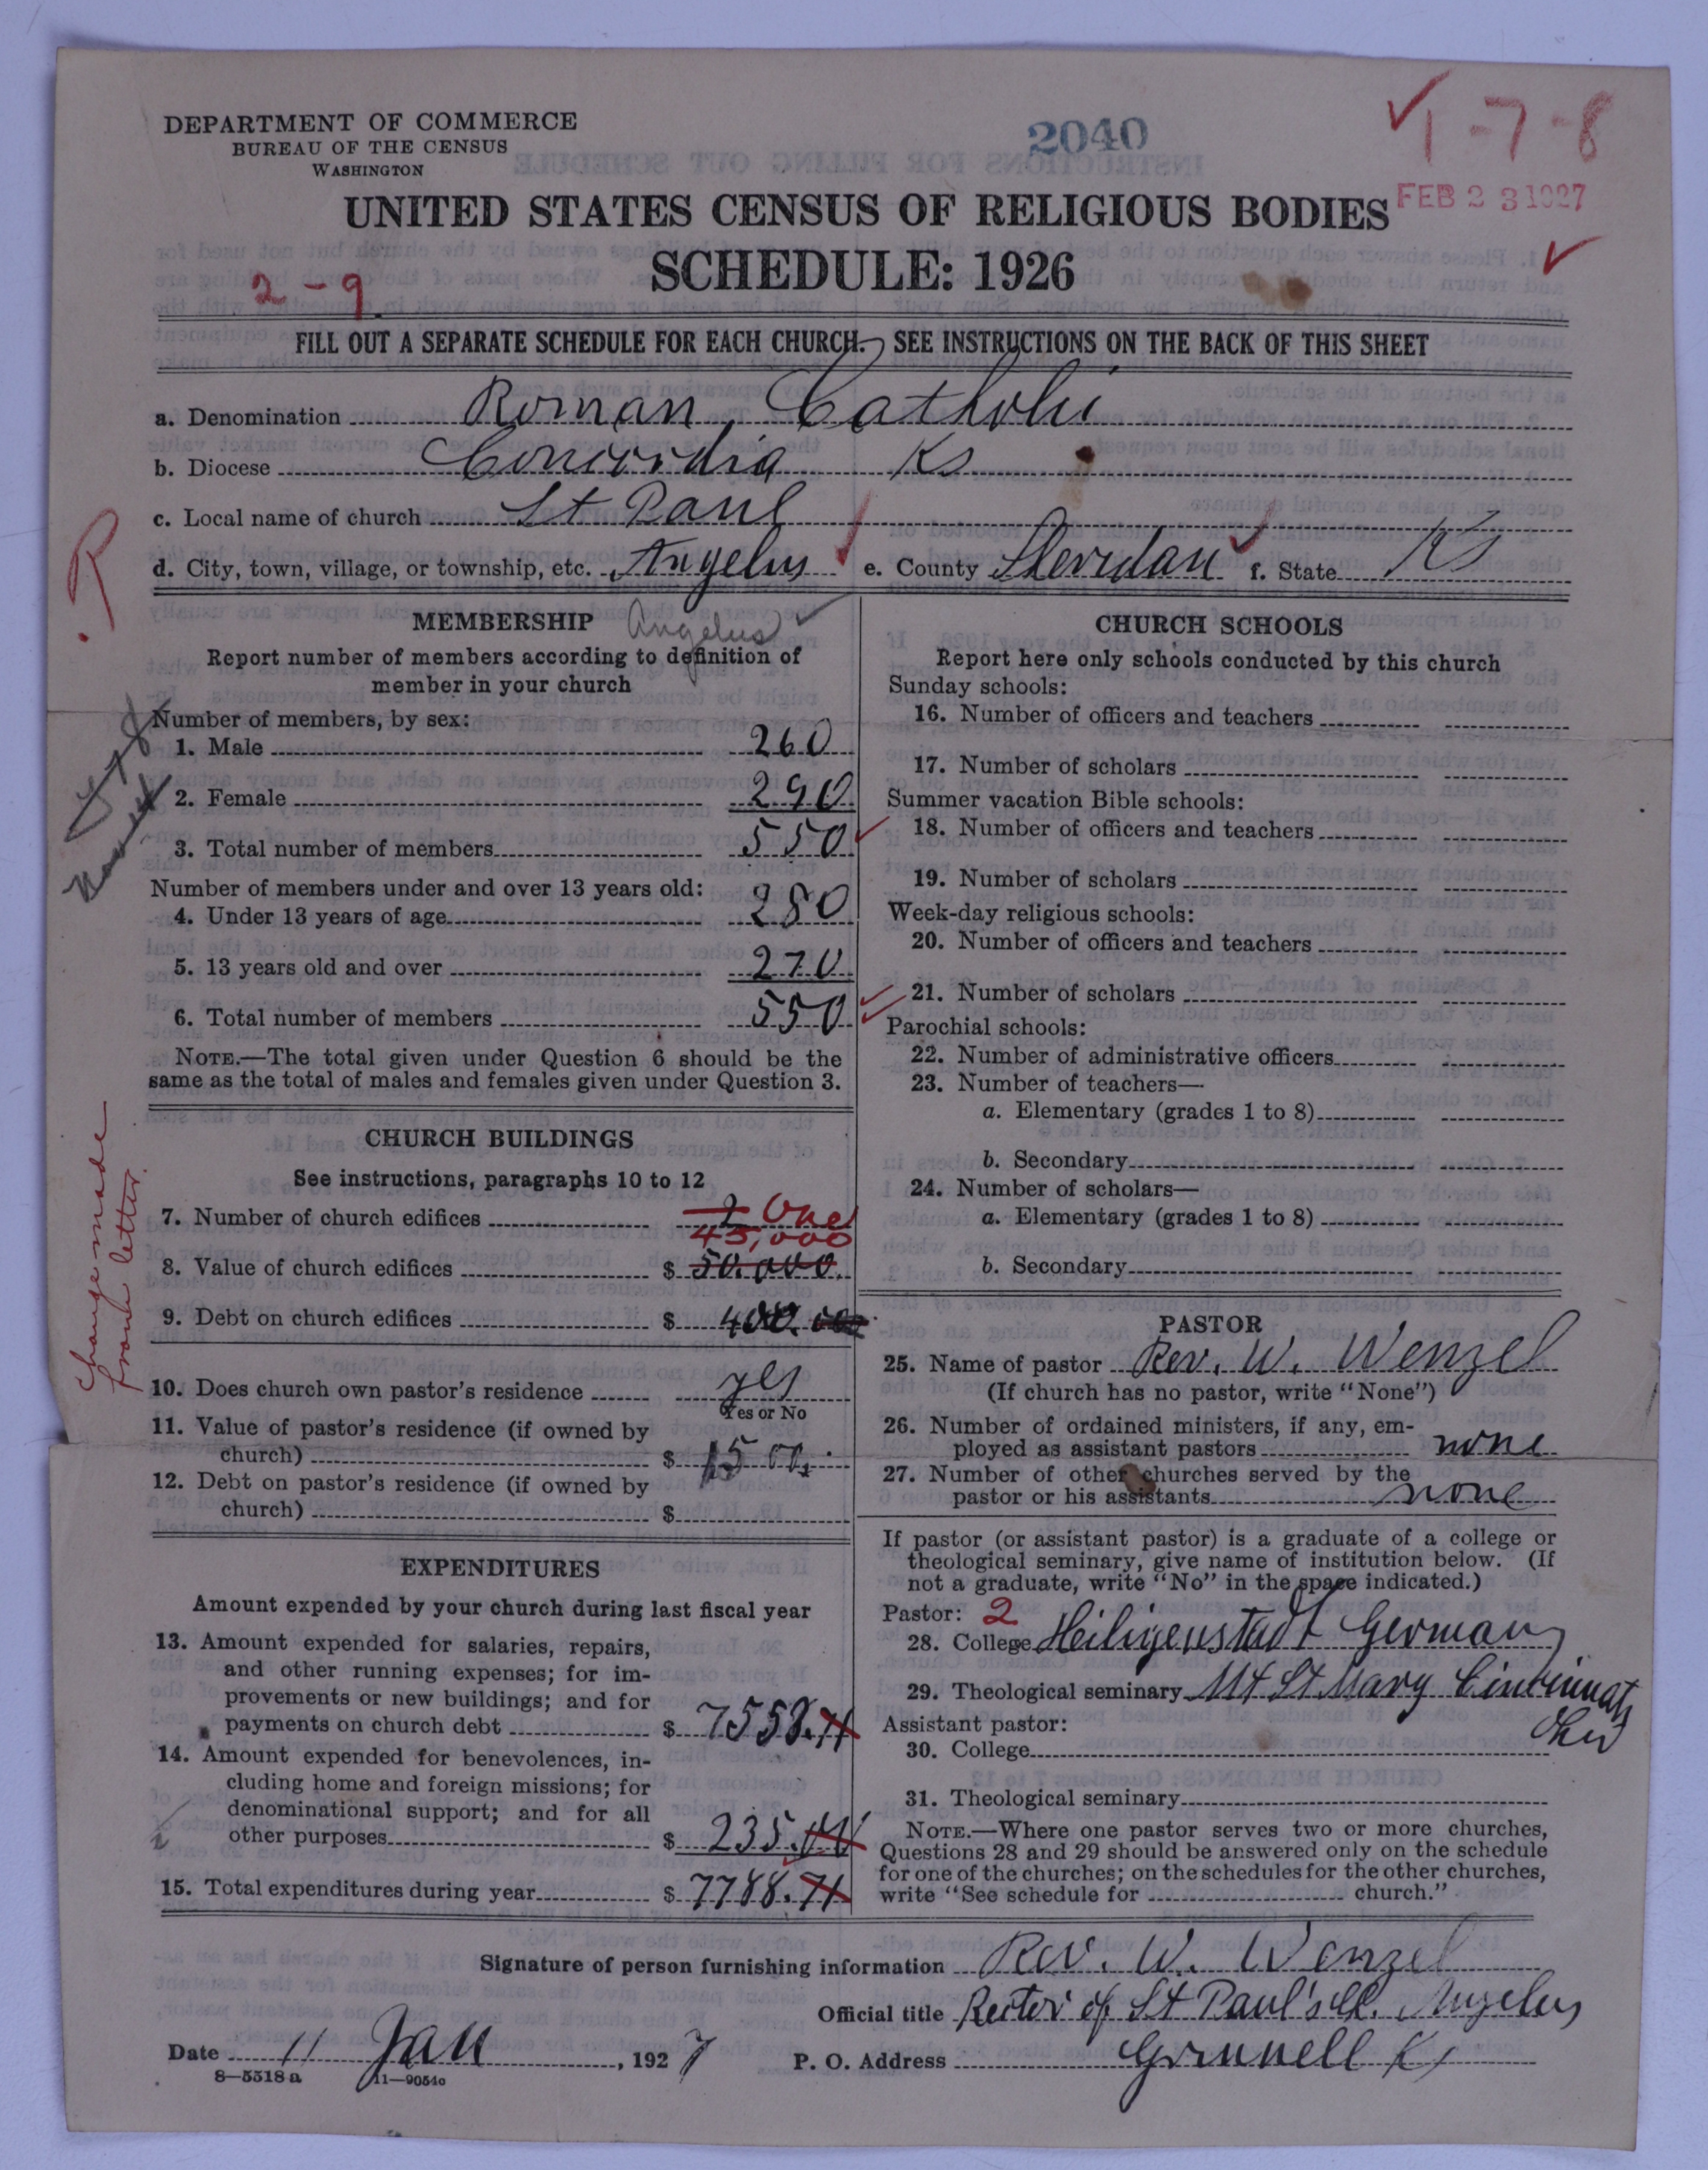 DEPARTMENT OF COMMERCE
BUREAU OF THE CENSUS
WASHINGTON
2040
1-7-8
FEB 23 1927
UNITED STATES CENSUS OF RELIGIOUS BODIES
SCHEDULE: 1926
2-9
FILL OUT A SEPARATE SCHEDULE FOR EACH CHURCH. SEE INSTRUCTIONS ON THE BACK OF THIS SHEET
a. Denomination Roman Catholic
b. Diocese Concordia Ks
c. Local name of church St Paul
d. City, town, village, or township, etc. Angelus e. County Sheridan f. State Ks
R
MEMBERSHIP Angelus
Report number of members according to definition of
member in your church
Number of members, by sex:
1. Male 260
2. Female 290
3. Total number of members 550
Number of members under and over 13 years old:
4. Under 13 years of age 280
5. 13 years old and over 270
6. Total number of members 550
NOTE.—The total given under Question 6 should be the
same as the total of males and females given under Question 3.
CHURCH BUILDINGS
See instructions, paragraphs 10 to 12
7. Number of church edifices 2 One
45,000
8. Value of church edifices $ 50.000.
9. Debt on church edifices $ 400.00
Change made
from letter.
10. Does church own pastor's residence yes
Yes or No
11. Value of pastor's residence (if owned by
church) $ 1500.
12. Debt on pastor's residence (if owned by
church) $
EXPENDITURES
Amount expended by your church during last fiscal year
13. Amount expended for salaries, repairs,
and other running expenses; for im-
provements or new buildings; and for
payments on church debt $ 7553.71
14. Amount expended for benevolences, in-
cluding home and foreign missions; for
denominational support; and for all
other purposes $ 235.00
15. Total expenditures during year $ 7788.71
CHURCH SCHOOLS
Report here only schools conducted by this church
Sunday schools:
16. Number of officers and teachers
17. Number of scholars
Summer vacation Bible schools:
18. Number of officers and teachers
19. Number of scholars
Week-day religious schools:
20. Number of officers and teachers
21. Number of scholars
Parochial schools:
22. Number of administrative officers
23. Number of teachers—
a. Elementary (grades 1 to 8)
b. Secondary
24. Number of scholars—
a. Elementary (grades 1 to 8)
b. Secondary
PASTOR
25. Name of pastor Rev. W. Wenzel
(If church has no pastor, write "None")
26. Number of ordained ministers, if any, em-
ployed as assistant pastors none
27. Number of other churches served by the
pastor or his assistants none
If pastor (or assistant pastor) is a graduate of a college or
theological seminary, give name of institution below. (If
not a graduate, write "No" in the space indicated.)
Pastor: 2
28. College Heiligenstadt Germany
29. Theological seminary Mt St Mary Cincinnati
Ohio
Assistant pastor:
30. College
31. Theological seminary
NOTE.—Where one pastor serves two or more churches,
Questions 28 and 29 should be answered only on the schedule
for one of the churches; on the schedules for the other churches,
write "See schedule for church."
Signature of person furnishing information Rev. W. Wenzel
Official title Rector of St Paul's Ch. Angelus
Date 11 Jan, 1927 P. O. Address Grinnell Ks
8—5518a 11—9054c